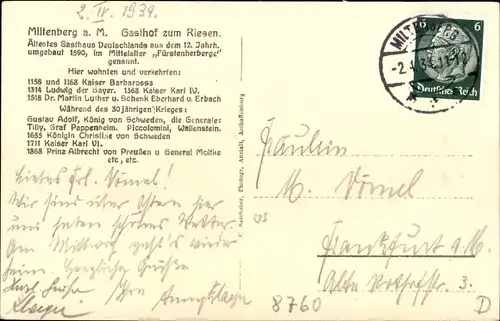 2. IV. 1934.
Miltenberg a. M. Gasthof zum Riesen.
Ältestes Gasthaus Deutschlands aus dem 12. Jahrh.
umgebaut 1590, im Mittelalter „Fürstenherberge"
genannt.
Hier wohnten und verkehrten:
1158 und 1168 Kaiser Barbarossa
1314 Ludwig der Bayer. 1368 Kaiser Karl IV.
1518 Dr. Martin Luther u. Schenk Eberhard v. Erbach
Während des 30jährigen Krieges:
Gustav Adolf, König von Schweden, die Generale:
Tilly, Graf Pappenheim, Piccolomini, Wallenstein.
1655 Königin Christine von Schweden
1711 Kaiser Karl VI.
1868 Prinz Albrecht von Preußen u General Moltke
etc, etc.
Liebes Frl. Dömel!
Wir sind über Ostern hier
und haben schönes Wetter.
Am Mittwoch geht's wieder
heim. Herzliche Grüße
Karl
Photogr. Anstalt, Aschaffenburg
6 6
Deutsches Reich
MILTENBERG
Fräulein
M. Dömel
Frankfurt a. M.
Alte 3.
8760
D